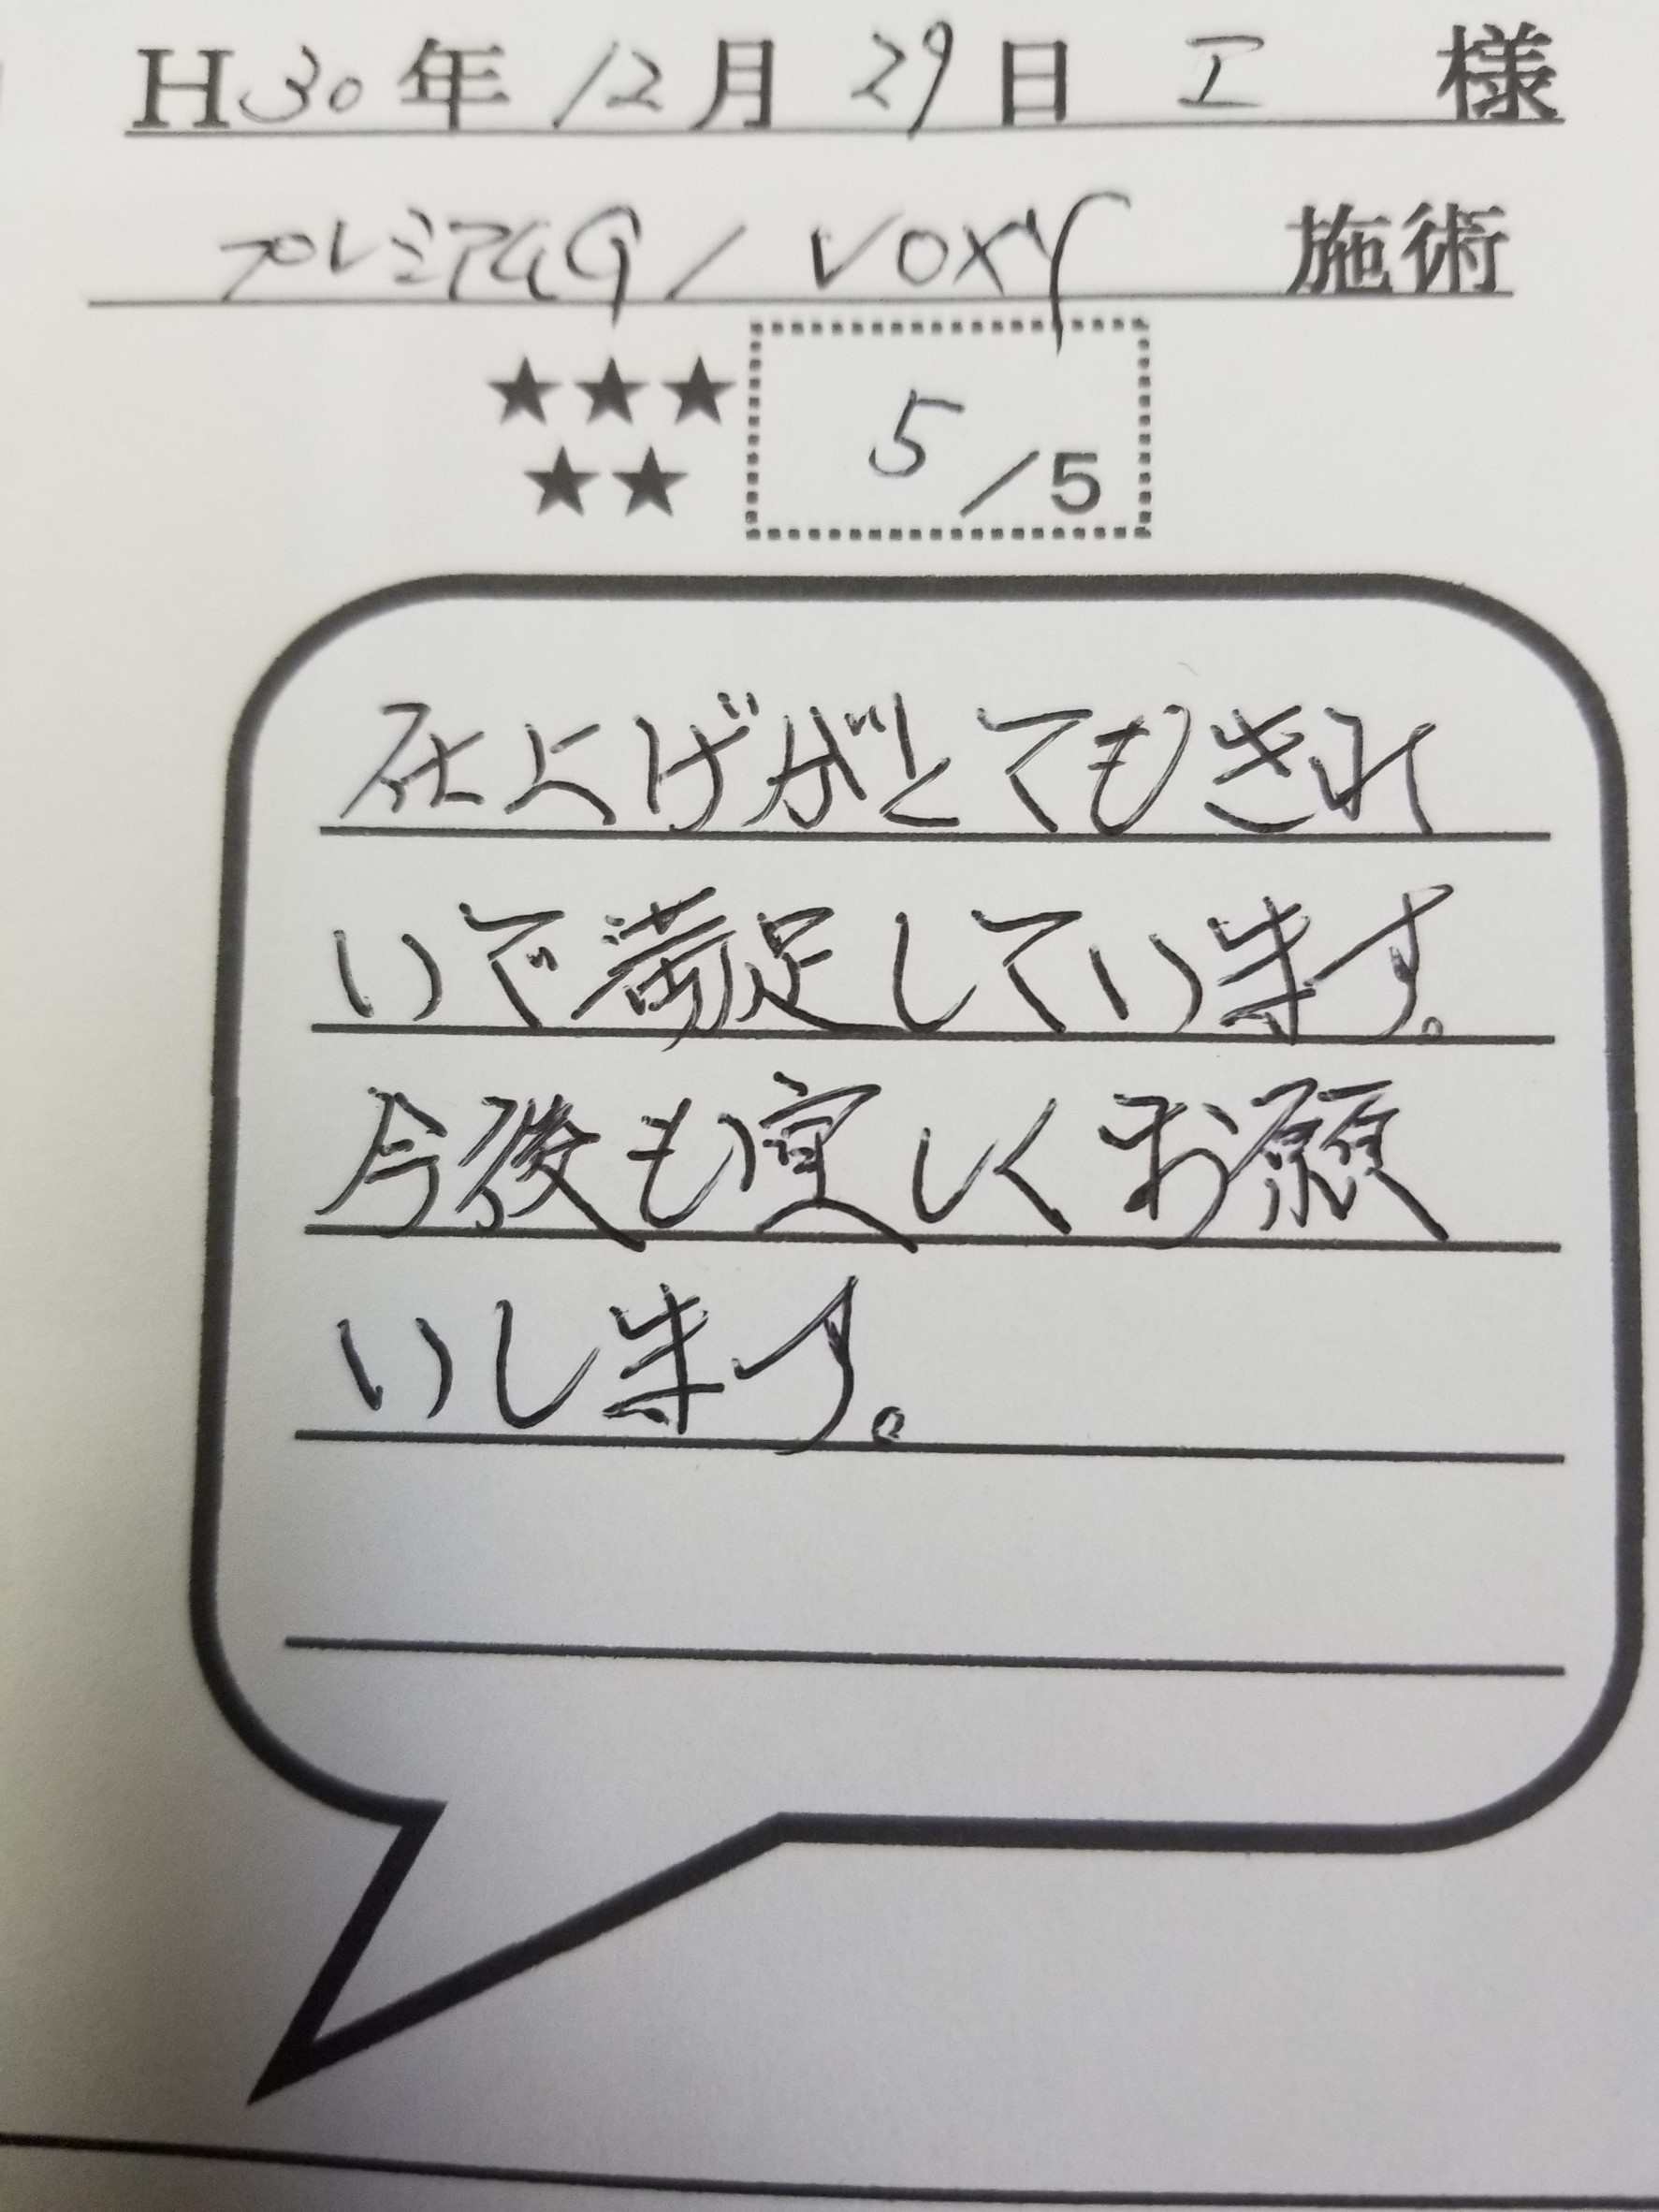 H30年12月29日 I 様
プレミアムG / VOXY 施術
★★★
★★
5/5
仕上げがとてもきれ
いで満足しています。
今後も宜しくお願
いします。